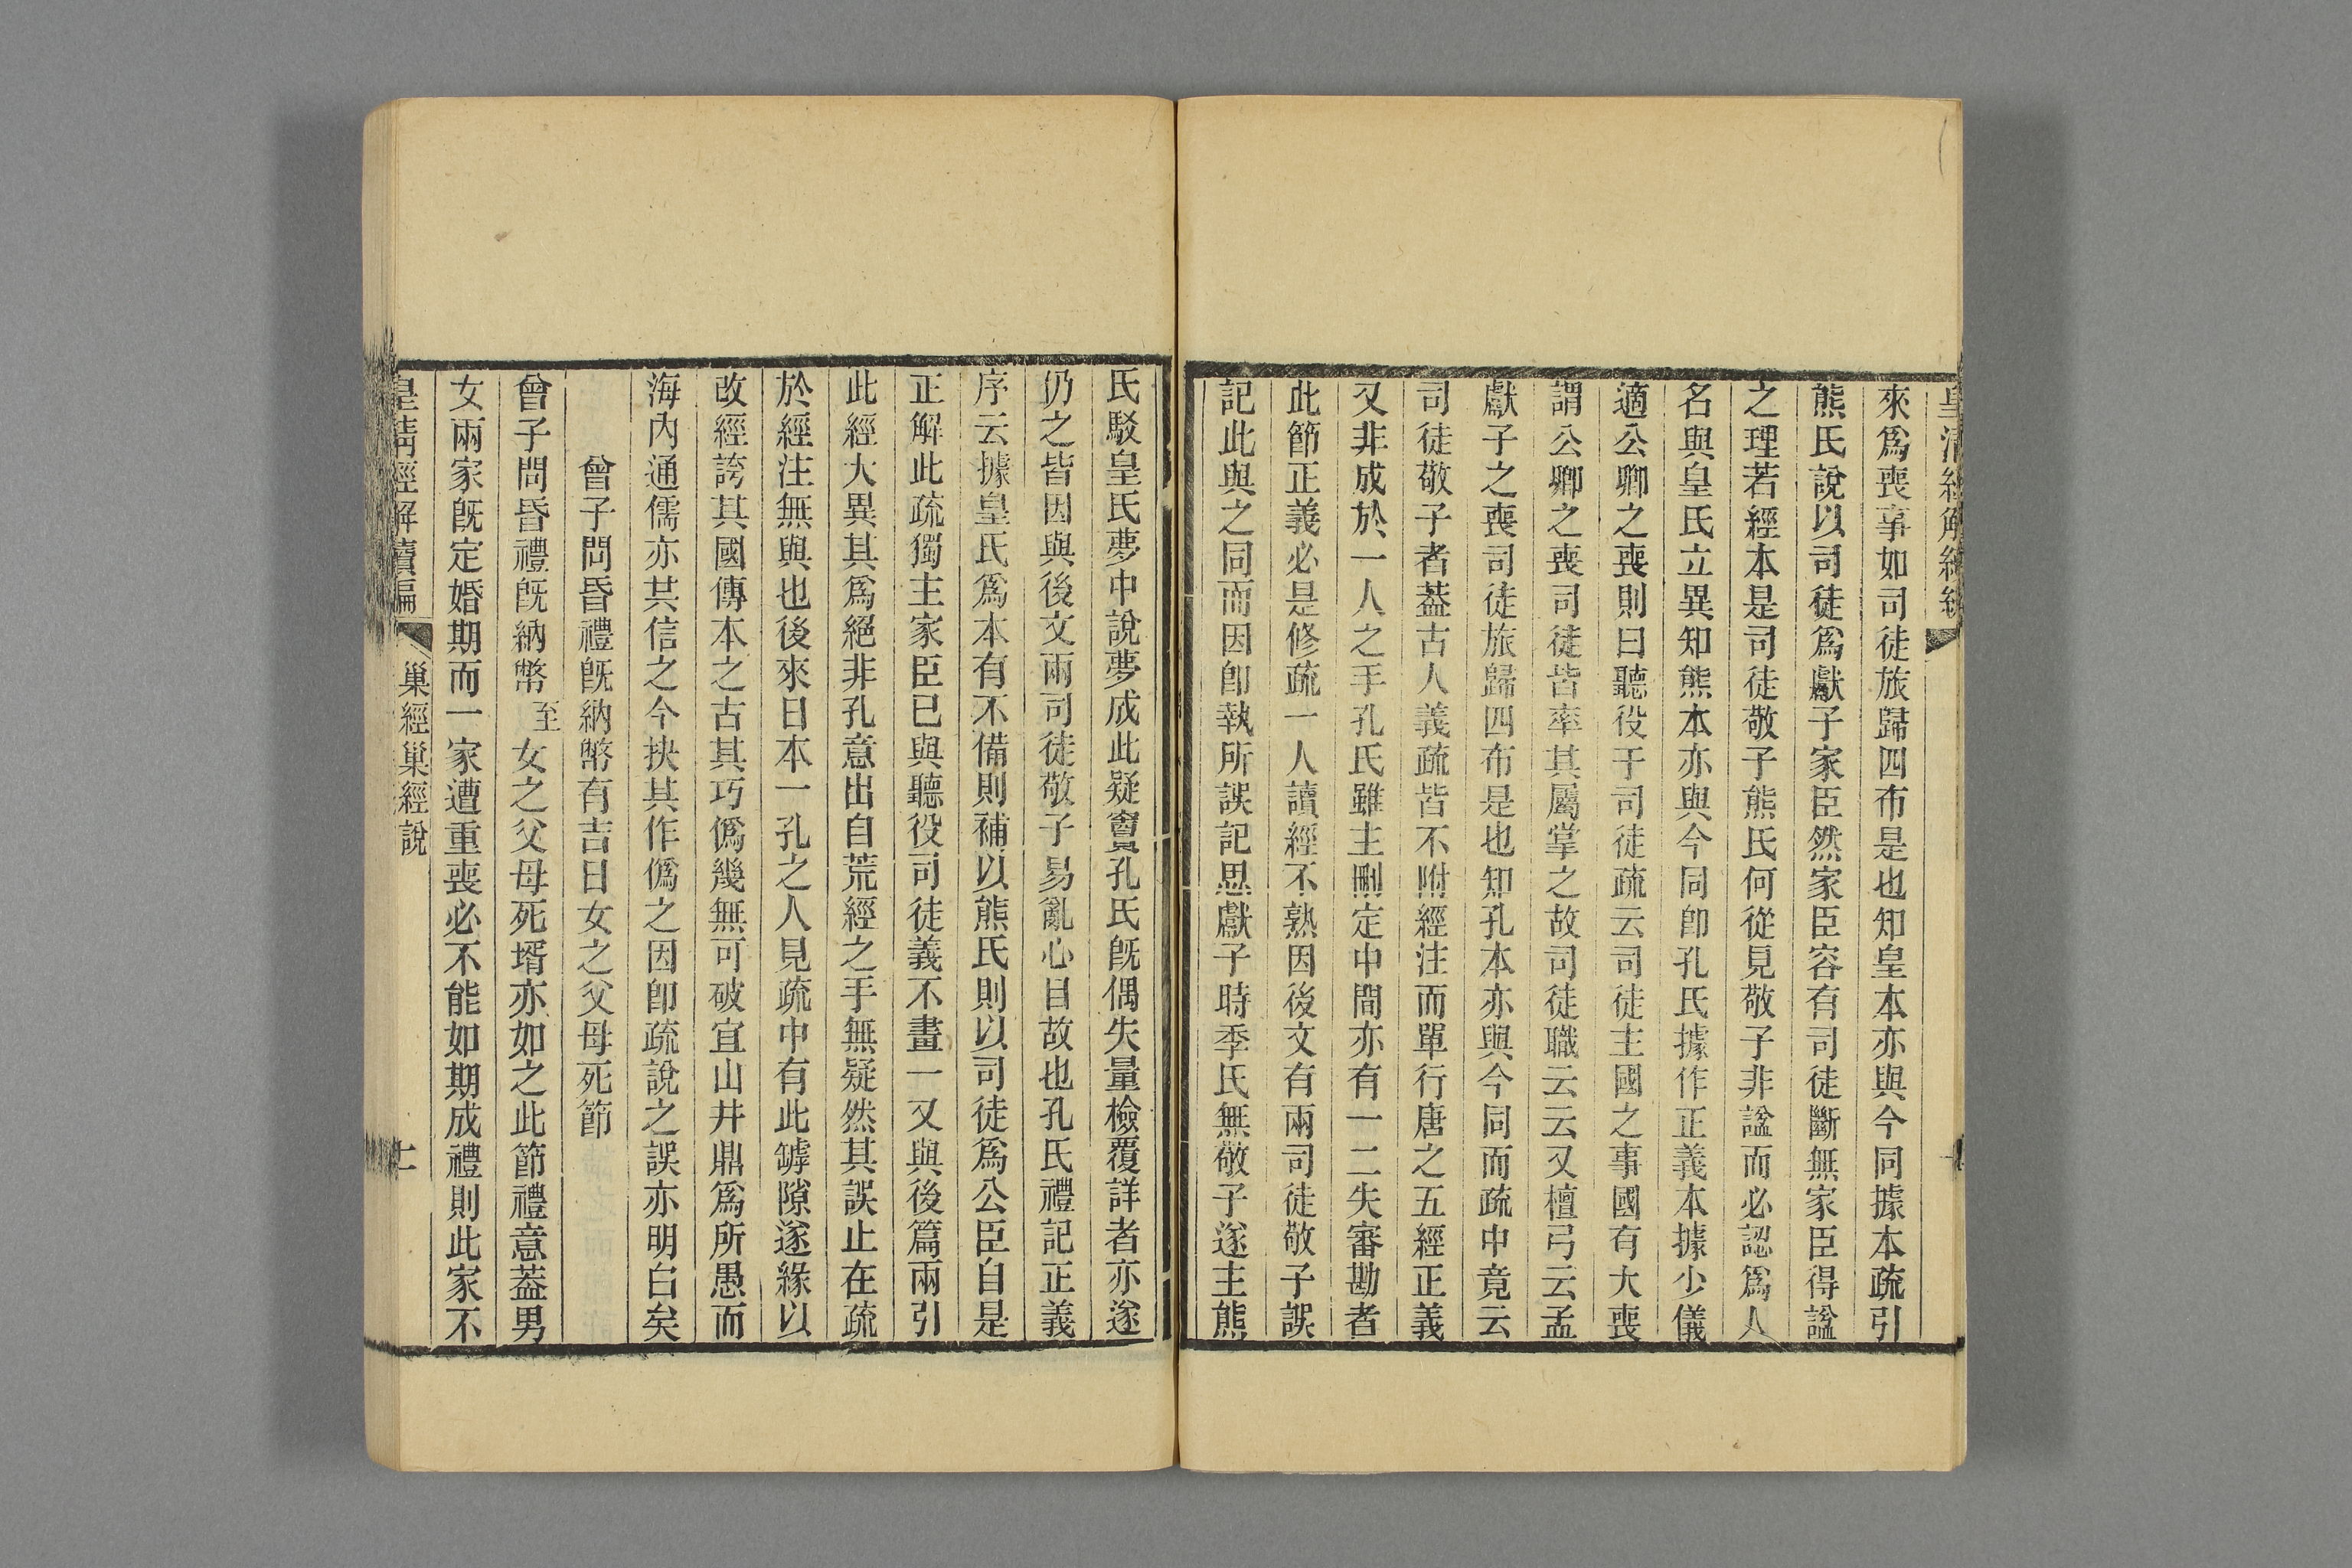 皇清經解續編
來爲喪事如司徒旅歸四布是也知皇本亦與今同據本疏引
熊氏說以司徒爲獻子家臣然家臣容有司徒斷無家臣得諡
之理若經本是司徒敬子熊氏何從見敬子非諡而必認爲人
名與皇氏立異知熊本亦與今同卽孔氏據作正義本據少儀
適公卿之喪則曰聽役于司徒疏云司徒主國之事國有大喪
謂公卿之喪司徒皆率其屬掌之故司徒職云云又檀弓云孟
獻子之喪司徒旅歸四布是也知孔本亦與今同而疏中竟云
司徒敬子者葢古人義疏皆不附經注而單行唐之五經正義
又非成於一人之手孔氏雖主刪定中間亦有一二失審勘者
此節正義必是修疏一人讀經不熟因後文有兩司徒敬子誤
記此與之同而因卽執所誤記思獻子時季氏無敬子遂主熊
氏駁皇氏夢中說夢成此疑竇孔氏旣偶失量檢覆詳者亦遂
仍之皆因與後文兩司徒敬子易亂心目故也孔氏禮記正義
序云據皇氏爲本有不備則補以熊氏則以司徒爲公臣自是
正解此疏獨主家臣已與聽役司徒義不畫一又與後篇兩引
此經大異其爲絕非孔意出自荒經之手無疑然其誤止在疏
於經注無與也後來日本一孔之人見疏中有此罅隙遂緣以
改經誇其國傳本之古其巧僞幾無可破宜山井鼎爲所愚而
海內通儒亦共信之今抉其作僞之因卽疏說之誤亦明白矣
曾子問昏禮旣納幣有吉日女之父母死節
曾子問昏禮旣納幣至女之父母死壻亦如之此節禮意葢男
女兩家旣定婚期而一家遭重喪必不能如期成禮則此家不
皇清經解續編 巢經巢經說 十一